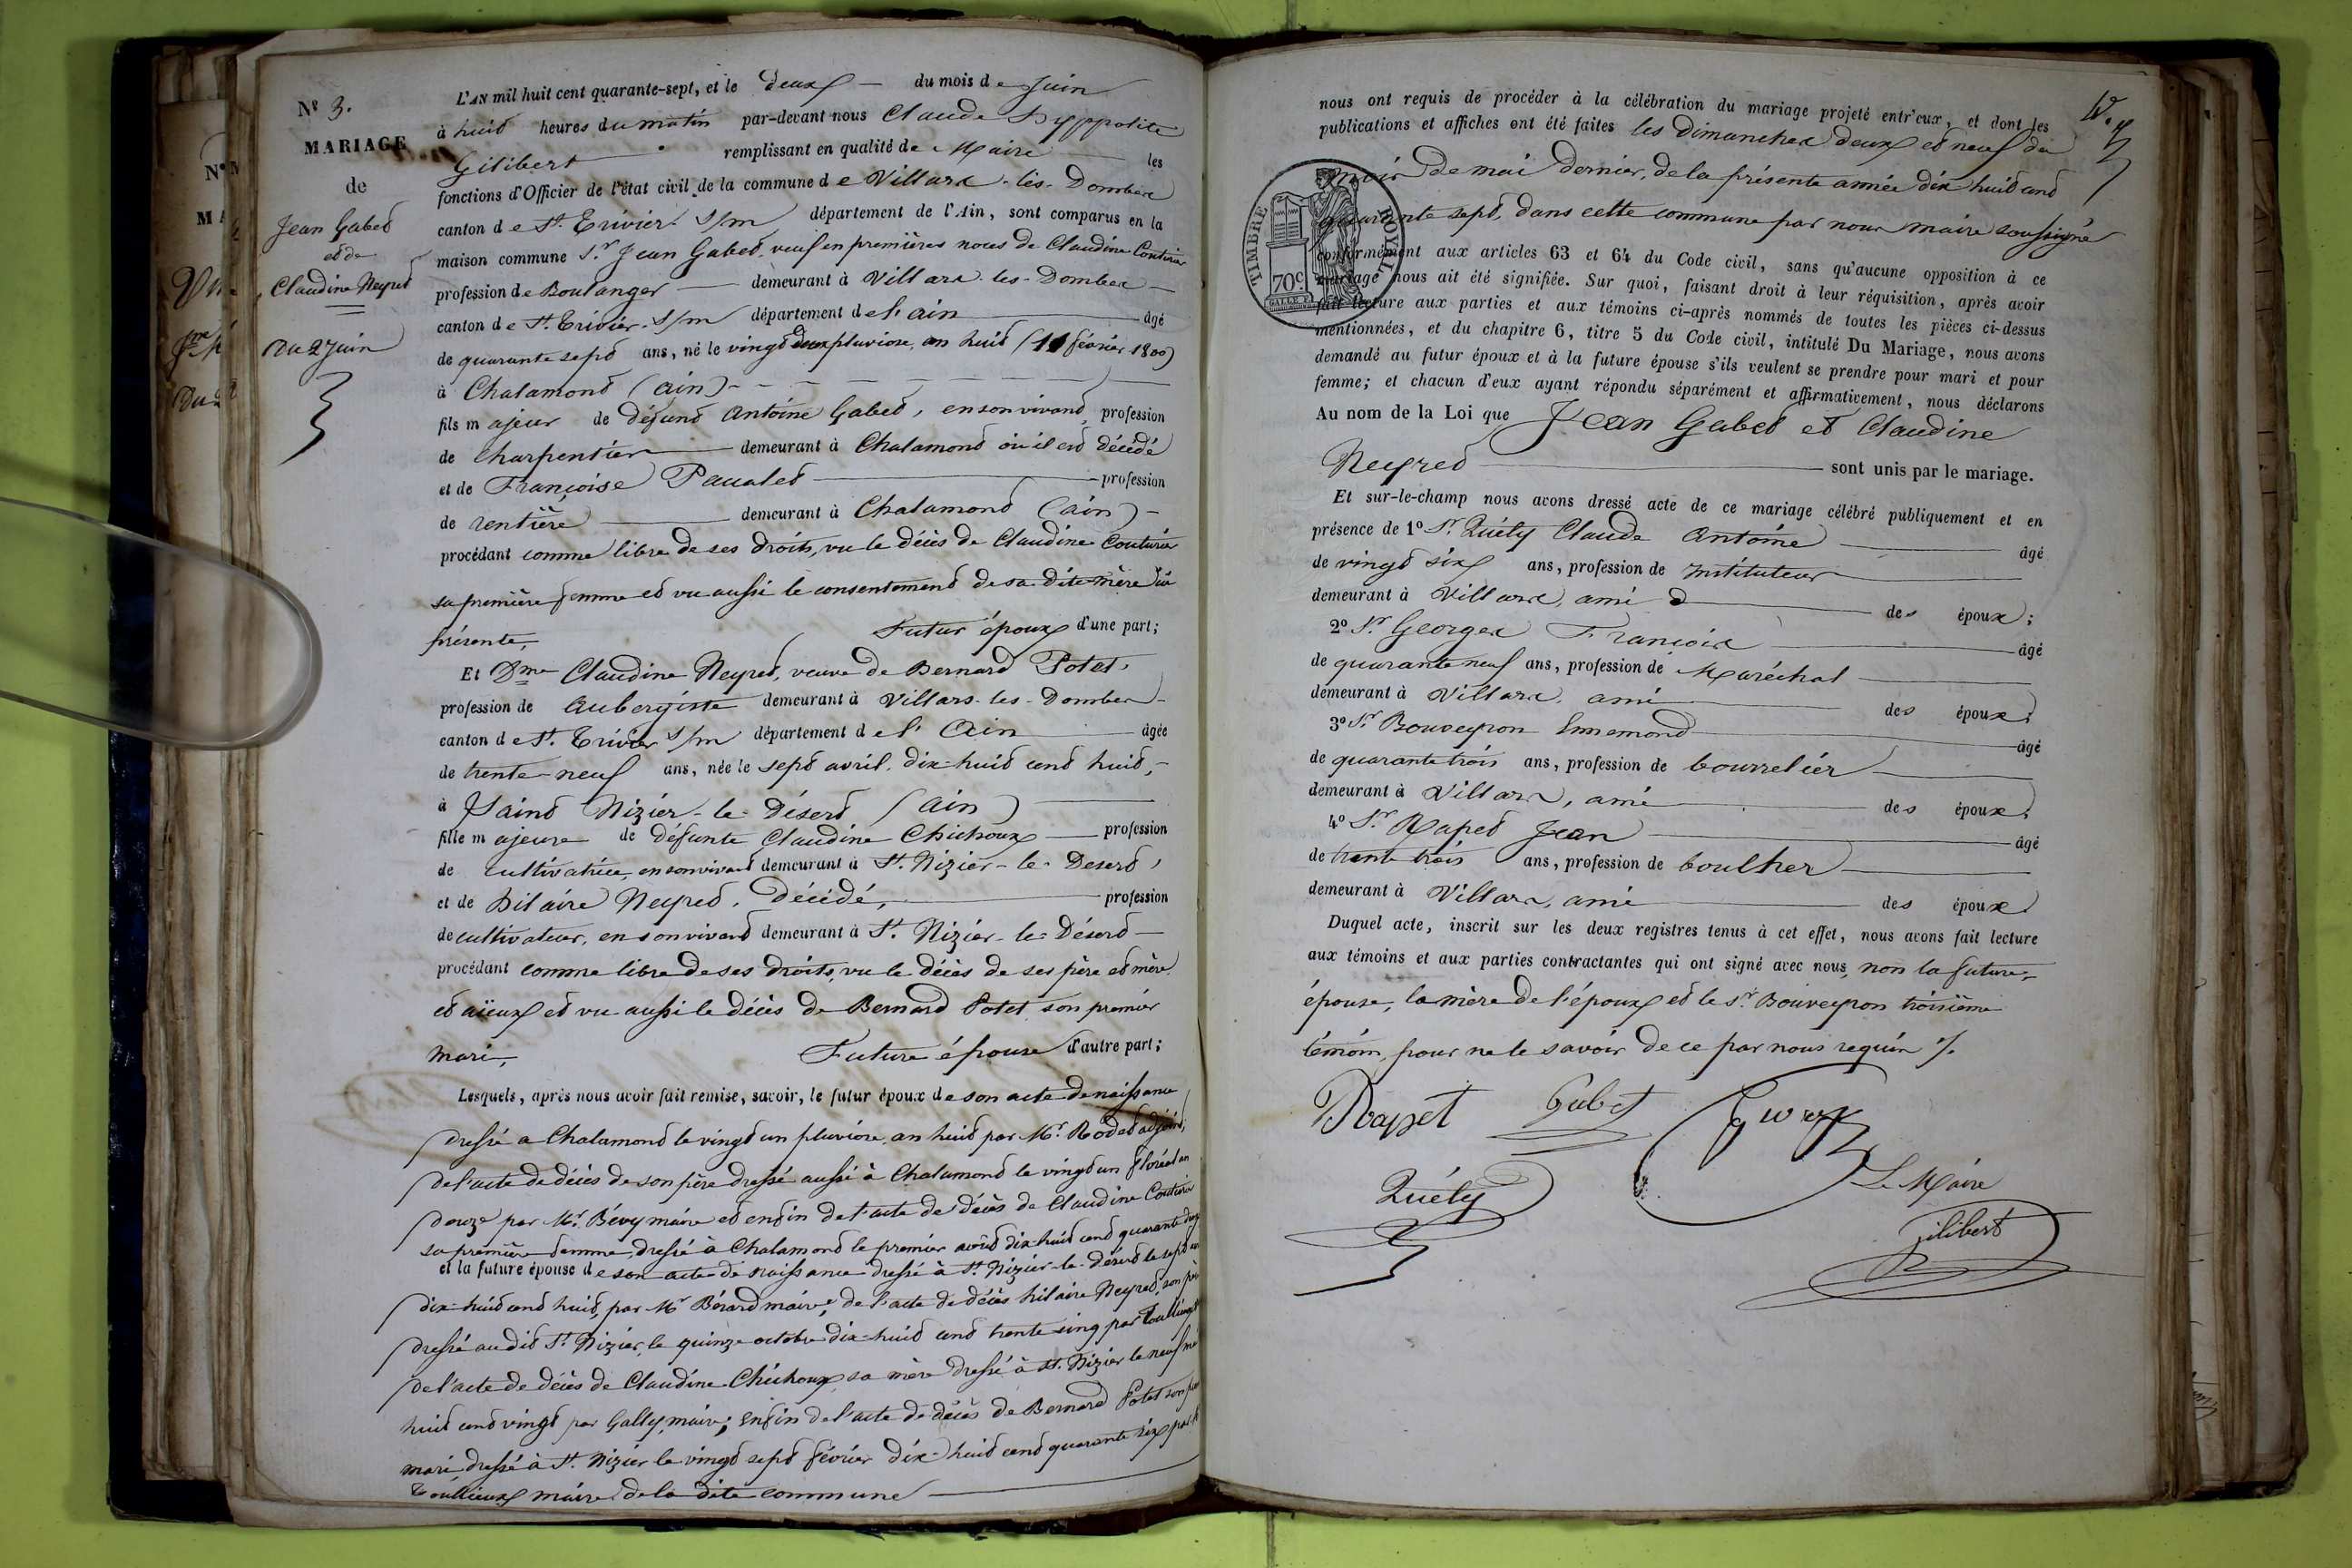 Nº 3.
MARIAGE
de
Jean Gabet
et de
Claudine Neyret
Du 2 Juin
L'AN mil huit cent quarante-sept, et le deux du mois de Juin
à huit heures du matin par-devant nous Claude Hyppolite
Gilibert remplissant en qualité de Maire les
fonctions d'Officier de l'état civil de la commune de Villars-les-Dombes
canton de St. Trivier s/m département de l'Ain, sont comparus en la
maison commune Sr. Jean Gabet, veuf en premières noces de Claudine Couturier
profession de Boulanger demeurant à Villars-les-Dombes
canton de St. Trivier s/m département de l'ain âgé
de quarante sept ans, né le vingt pluviose, an huit (11 février 1800)
à Chalamont (ain)
fils majeur de défunt Antoine Gabet, en son vivant profession
de Charpentier demeurant à Chalamont où il est décédé
et de Françoise Paualet profession
de rentière demeurant à Chalamont (ain)
procédant comme libre de ses droits, vu le décès de Claudine Couturier
sa première femme et vu aussi le consentement de sa dite mère ici
présente, Futur époux d'une part;
Et Dme Claudine Neyret, veuve de Bernard Potet,
profession de Aubergiste demeurant à Villars-les-Dombes
canton de St. Trivier s/m département de l'Ain âgée
de trente-neuf ans, née le sept avril dix-huit cent huit,
à Saint Nizier-le-Désert (ain)
fille majeure de défunte Claudine Chichoux profession
de cultivatrice, en son vivant demeurant à St. Nizier-le-Desert,
et de hilaire Neyret, Décédé, profession
de cultivateur, en son vivant demeurant à St. Nizier-le-Désert
procédant comme libre de ses droits, vu le décès de ses père et mère
et aïeux et vu aussi le décès de Bernard Potet son premier
mari, Future épouse d'autre part;
Lesquels, après nous avoir fait remise, savoir, le futur époux de son acte de naissance
dressé a Chalamont le vingt un pluviose, an huit par Mr. Rodet adjoint,
de l'acte de décès de son père dressé aussi à Chalamont le vingt un floréal an
douze par Mr. Bévy maire et enfin de l'acte de décès de Claudine Couturier
sa première femme, dressé à Chalamont le premier août dix huit cent quarante
et la future épouse de son acte de naissance dressé à St. Nizier-le-désert le sept
dix-huit cent huit, par Mr Bérard maire, de l'acte de décès hilaire Neyret, son père
dressé au dit St. Nizier, le quinze octobre dix-huit cent trente cinq par
de l'acte de décès de Claudine Chichoux, sa mère dressé à St. Nizier le neuf
huit cent vingt par Gally, maire; enfin de l'acte de décès de Bernard Potet son
mari, dressé à St. Nizier le vingt sept février dix-huit cent quarante six par
Toullieux maire de la dite commune
nous ont requis de procéder à la célébration du mariage projeté entr'eux, et dont les
publications et affiches ont été faites les Dimanches deux et neuf du
mois de mai dernier, de la présente année dix huit cent
quarante sept, dans cette commune par nous maire soussigné
TIMBRE ROYAL
70c
conformément aux articles 63 et 64 du Code civil, sans qu'aucune opposition à ce
mariage nous ait été signifiée. Sur quoi, faisant droit à leur réquisition, après avoir
fait lecture aux parties et aux témoins ci-après nommés de toutes les pièces ci-dessus
mentionnées, et du chapitre 6, titre 5 du Code civil, intitulé Du Mariage, nous avons
demandé au futur époux et à la future épouse s'ils veulent se prendre pour mari et pour
femme; et chacun d'eux ayant répondu séparément et affirmativement, nous déclarons
Au nom de la Loi que Jean Gabet et Claudine
Neyret sont unis par le mariage.
Et sur-le-champ nous avons dressé acte de ce mariage célébré publiquement et en
présence de 1º Sr. Quiély Claude Antoine âgé
de vingt six ans, profession de Instituteur
demeurant à Villars, ami des époux;
2º Sr Georges François âgé
de quarante neuf ans, profession de Maréchal
demeurant à Villars, ami des époux;
3º Sr Bouveyron Ennemond âgé
de quarante trois ans, profession de bourrelier
demeurant à Villars, ami des époux;
4º Sr Rapet Jean âgé
de trente trois ans, profession de boulher
demeurant à Villars, ami des époux.
Duquel acte, inscrit sur les deux registres tenus à cet effet, nous avons fait lecture
aux témoins et aux parties contractantes qui ont signé avec nous, non la future
épouse, la mère de l'époux et le sr. Bouveyron troisième
témoin, pour ne le savoir de ce par nous requis ./.
Rapet Gabet
Quiély Le Maire
Gilibert